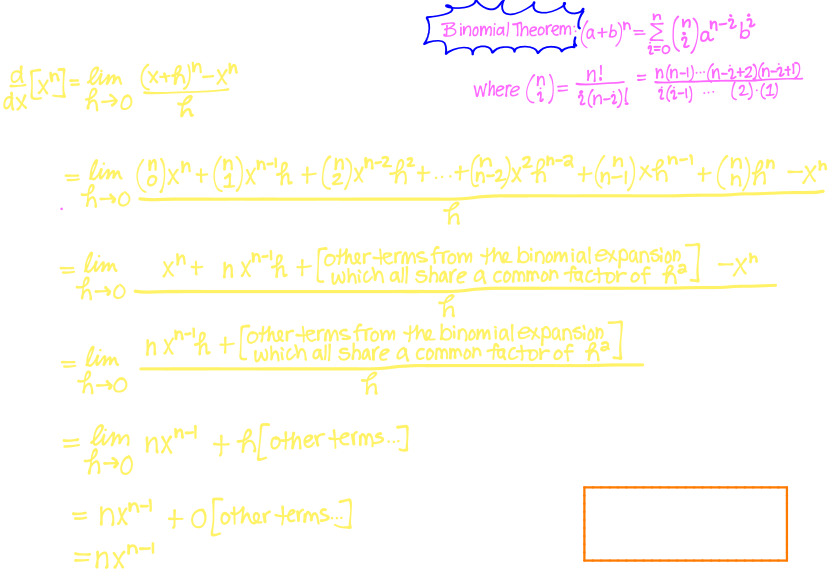 Binomial Theorem: (a+b)^n = Σ_{i=0}^{n} (n i) a^{n-i} b^i
where (n i) = n!/i!(n-i)! = n(n-1)···(n-i+2)(n-i+1)/i(i-1) ··· (2)·(1)
d/dx [x^n] = lim_{h→0} (x+h)^n - x^n / h
= lim_{h→0} (n 0)x^n + (n 1)x^{n-1}h + (n 2)x^{n-2}h^2 + ... + (n n-2)x^2h^{n-2} + (n n-1)xh^{n-1} + (n n)h^n - x^n / h
= lim_{h→0} x^n + nx^{n-1}h + [other terms from the binomial expansion
which all share a common factor of h^2] - x^n / h
= lim_{h→0} nx^{n-1}h + [other terms from the binomial expansion
which all share a common factor of h^2] / h
= lim_{h→0} nx^{n-1} + h[other terms...]
= nx^{n-1} + 0[other terms...]
= nx^{n-1}